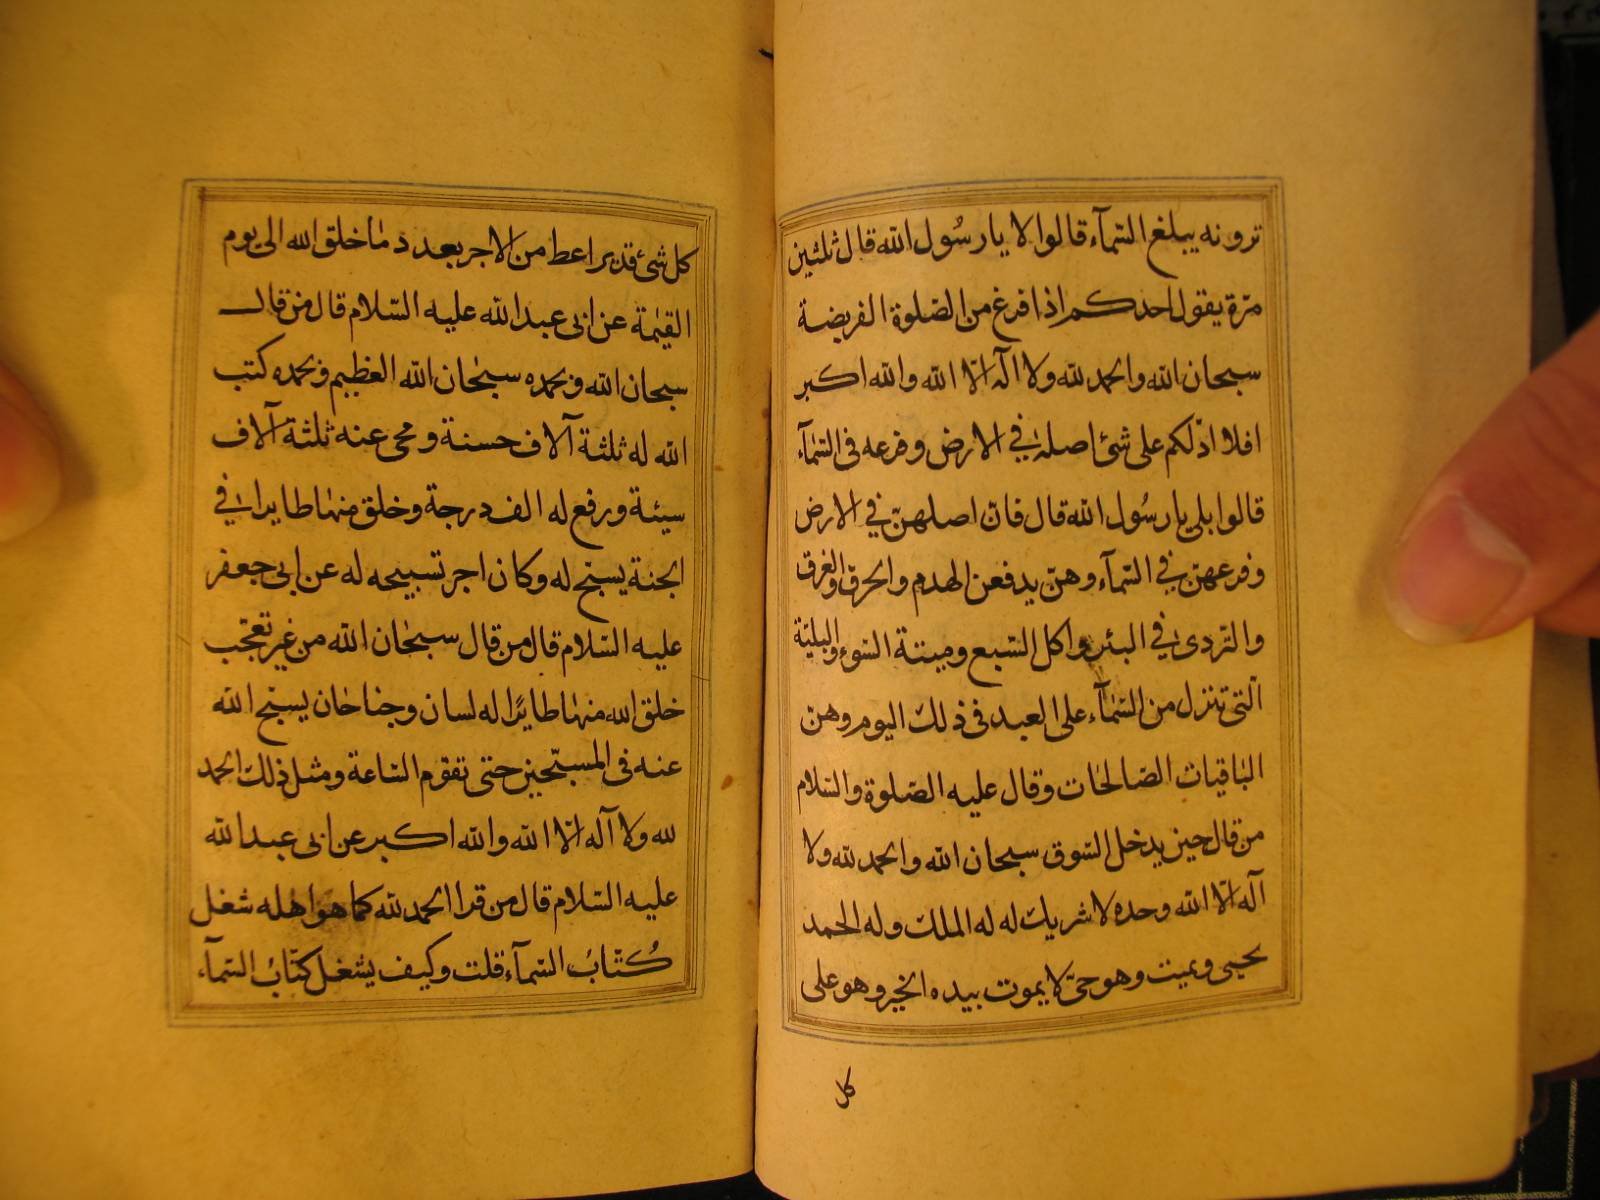 ترونه يبلغ السّمآء قالوا لا يا رسُول الله قال ثلثين
مرّة يقول احدكم اذا فرغ من الصّلوة الفريضة
سبحان الله والحمد لله ولا اله الّا الله والله اكبر
افلا ادّلكم على شئ اصله في الارض وفرعه فى السّمآء
قالوا بلى يا رسُول الله قال فانّ اصلهنّ في الارض
وفرعهنّ في السّمآء وهنّ يدفعن الهدم والحرق والغرق
والتّردى في البئر واكل السّبع وميتة السّوء والبليّة
الّتى تنزل من السّمآء على العبد فى ذلك اليوم وهنّ
الباقيات الصّالحات وقال عليه الصّلوة والسّلام
من قال حين يدخل السّوق سبحان الله والحمد لله ولا
آله الّا الله وحده لا شريك له له الملك وله الحمد
يحيى ويميت وهو حىّ لا يموت بيده الخير وهو على
كل
كل شئ قدير اعط من الاجر بعدد ما خلق الله الى يوم
القيمة عن ابى عبد الله عليه السّلام قال من قال
سبحان الله وبحمده سبحان الله العظيم وبحمده كتب
الله له ثلثة آلاف حسنة ومحى عنه ثلثة آلاف
سيئة ورفع له الف درجة وخلق منها طايرا في
الجنة يسبح له وكان اجر تسبيحه له عن ابى جعفر
عليه السّلام قال من قال سبحان الله من غير تعجّب
خلق الله منها طايرًا له لسان وجناحان يسبح الله
عنه فى المسبّحين حتى تقوم السّاعة ومثل ذلك الحمد
لله ولا آله الّا الله والله اكبر عن ابى عبد الله
عليه السّلام قال من قرا الحمد لله كما هو اهله شغل
كُتّاب السّمآء قلت وكيف يشغل كتّاب السّمآء